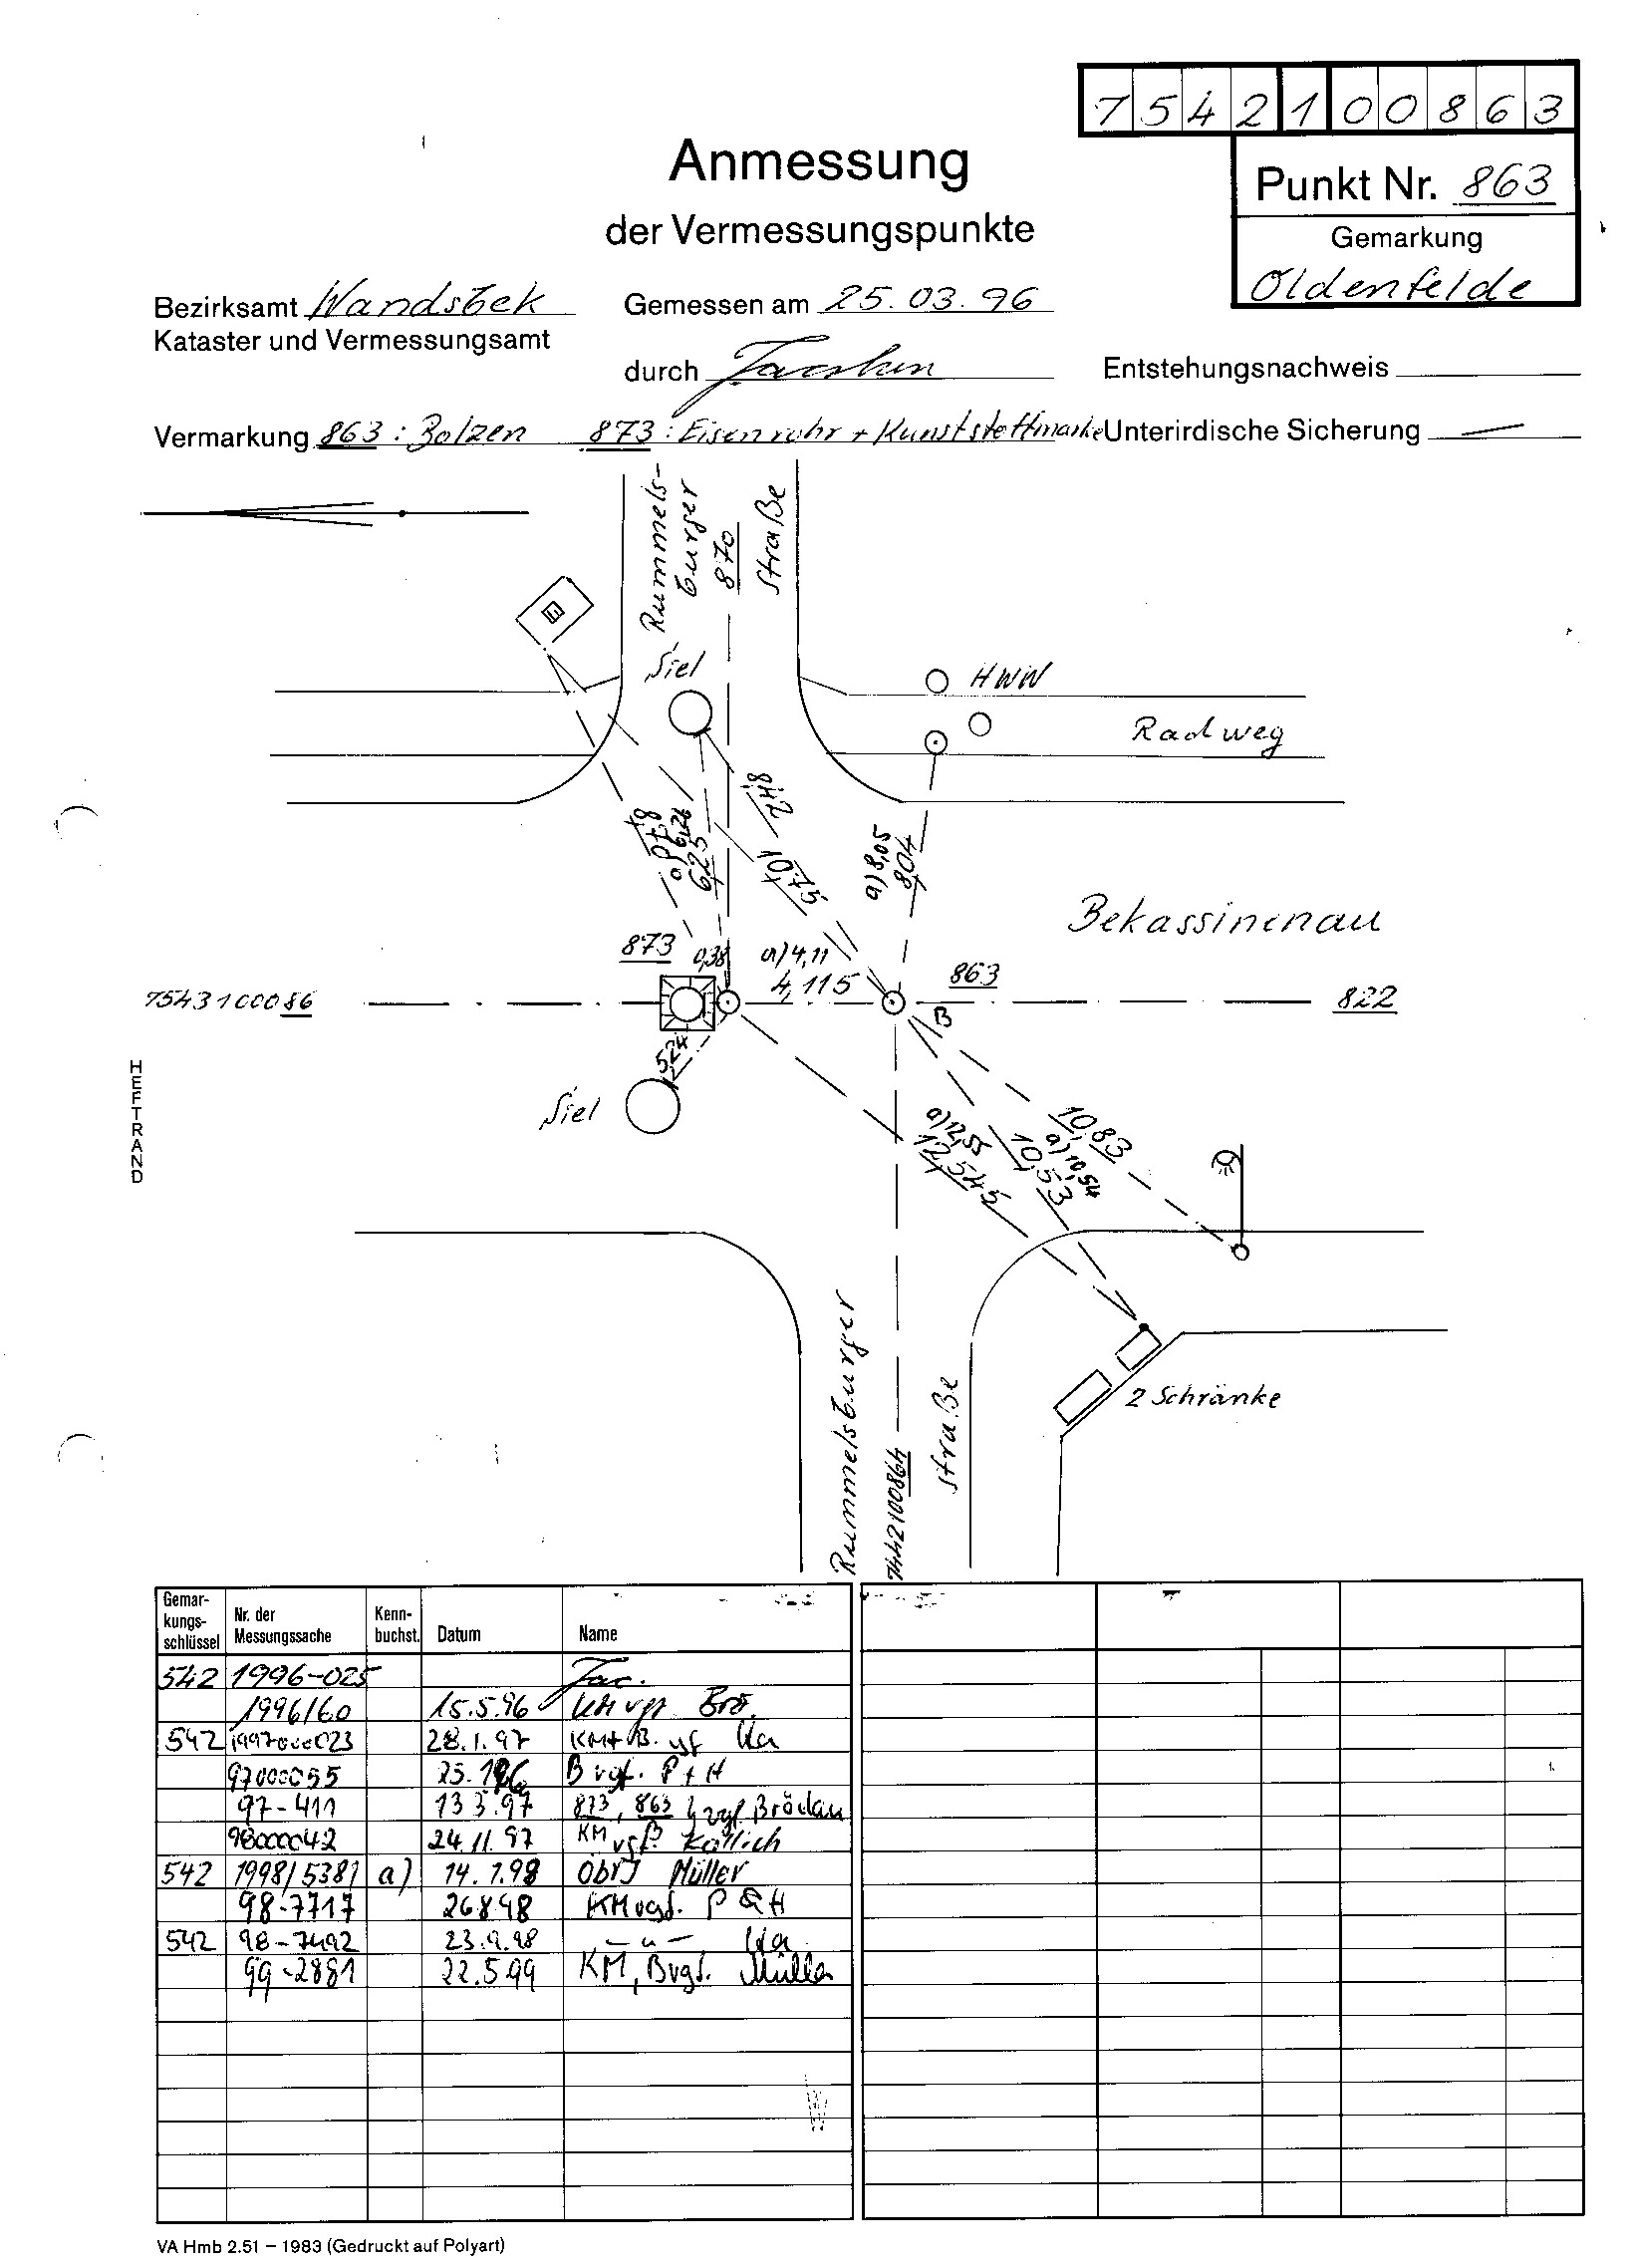 7542100863
Anmessung
der Vermessungspunkte
Punkt Nr. 863
Gemarkung
Oldenfelde
Bezirksamt Wandsbek
Gemessen am 25.03.96
Kataster und Vermessungsamt
durch
Entstehungsnachweis
Vermarkung 863: Bolzen 873: Eisenrohr + Kunststoffmarke Unterirdische Sicherung —
Rummels-
burger
870
Straße
Siel
HWW
Radweg
6,26
6,25
10,75
a) 8,05
8,04
Bekassinenau
873
0,38
a) 4,11
4,115
863
7543100086
822
B
5,24
Siel
HEFTRAND
a) 12,55
12,545
10,53
a) 10,54
10,83
2 Schränke
Rummelsburger
7442100864
Straße
Gemar-
kungs-
schlüssel
Nr. der
Messungssache
Kenn-
buchst.
Datum
Name
542 1996-025 Jac.
1996/60 15.5.96 KM vgf. Brö.
542 1997000023 28.1.97 KM+B. vgf
97000055 B vgf. P+H
97-411 13.3.97 873, 863 vgf
98000042 24.11.97 KM vgf.
542 1998/5381 a) 14.7.98 ObVI Müller
98-7717 26.8.98 KM vgf. P&H
542 98-7492 23.9.98 — " —
99-2881 22.5.99 KM, B vgf. Müller
VA Hmb 2.51 – 1983 (Gedruckt auf Polyart)